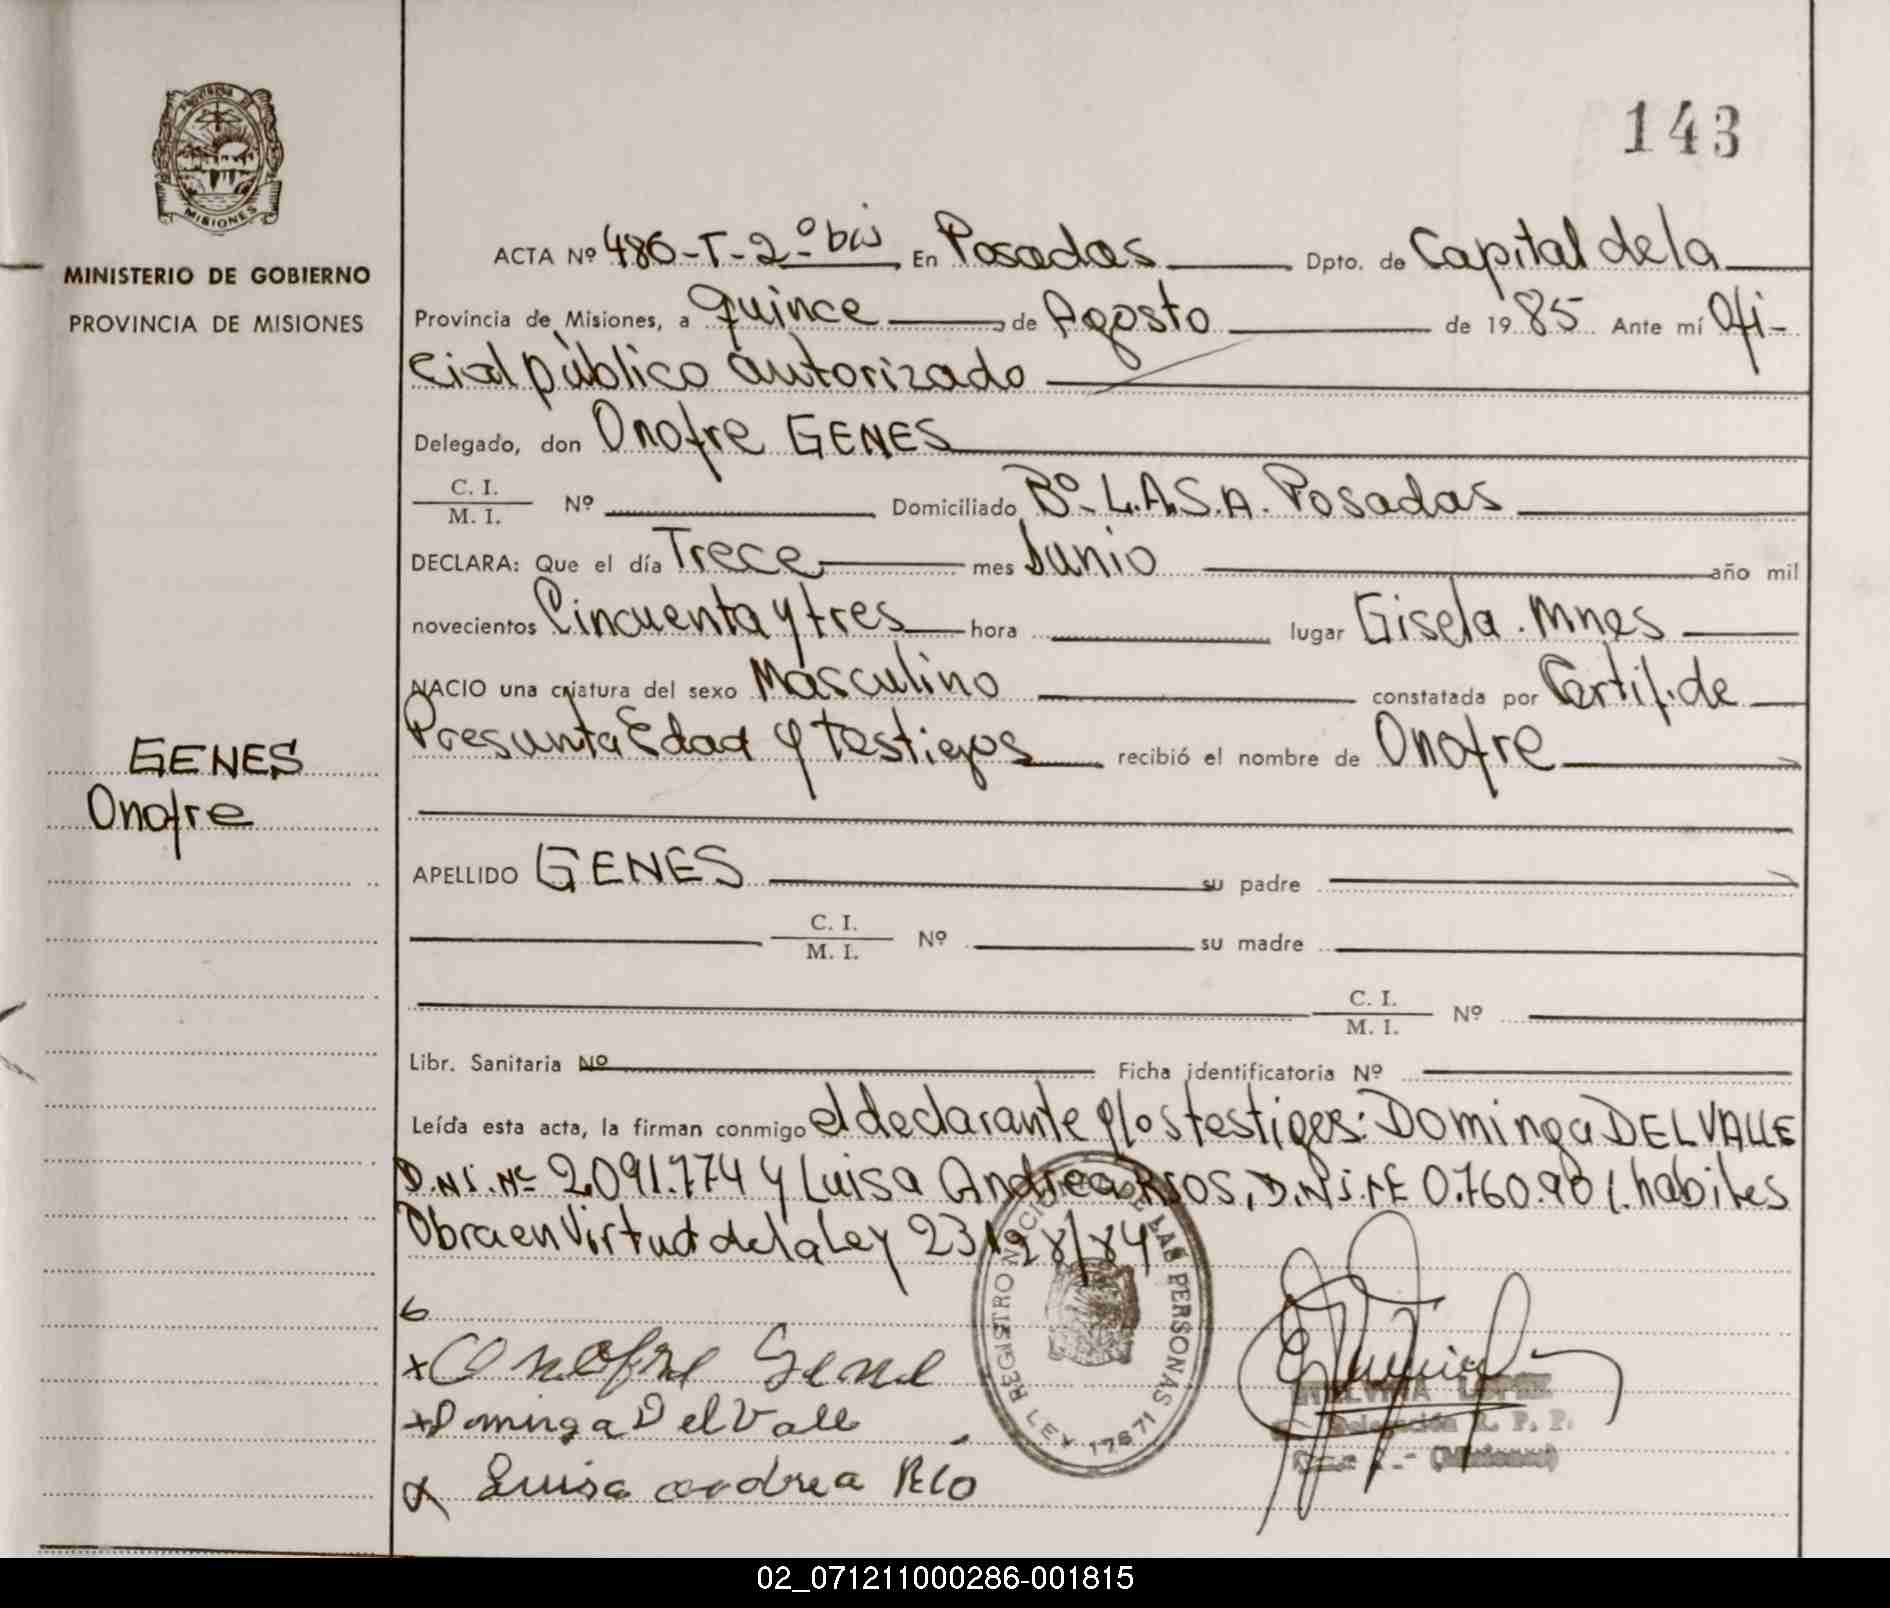 143
PROVINCIA DE
MISIONES
MINISTERIO DE GOBIERNO
PROVINCIA DE MISIONES
GENES
Onofre
ACTA Nº 486-T-2º bis En Posadas Dpto. de Capital de la
Provincia de Misiones, a quince de Agosto de 1985 Ante mí Ofi-
cial público autorizado
Delegado, don Onofre GENES
C. I.
M. I. Nº Domiciliado Bº. L.A.S.A. Posadas
DECLARA: Que el día Trece mes Junio año mil
novecientos Cincuenta y tres hora lugar Gisela. Mnes
NACIO una criatura del sexo Masculino constatada por Certif. de
Presunta Edad y testigos recibió el nombre de Onofre
APELLIDO GENES su padre
C. I.
M. I. Nº su madre
C. I.
M. I. Nº
Libr. Sanitaria Nº Ficha identificatoria Nº
Leída esta acta, la firman conmigo el declarante y los testigos: Dominga DEL VALLE
D.N.I. Nº 2.091.774 y Luisa Andrea RIOS, D.N.I. Nº habiles
Obra en Virtud de la Ley 23128/84
x Onofre Gene
x Dominga Del Valle
x Luisa andrea Rio
REGISTRO NACIONAL DE LAS PERSONAS
LEY 17671
LOPEZ
Delegación R. P. P.
(Misiones)
02_071211000286-001815